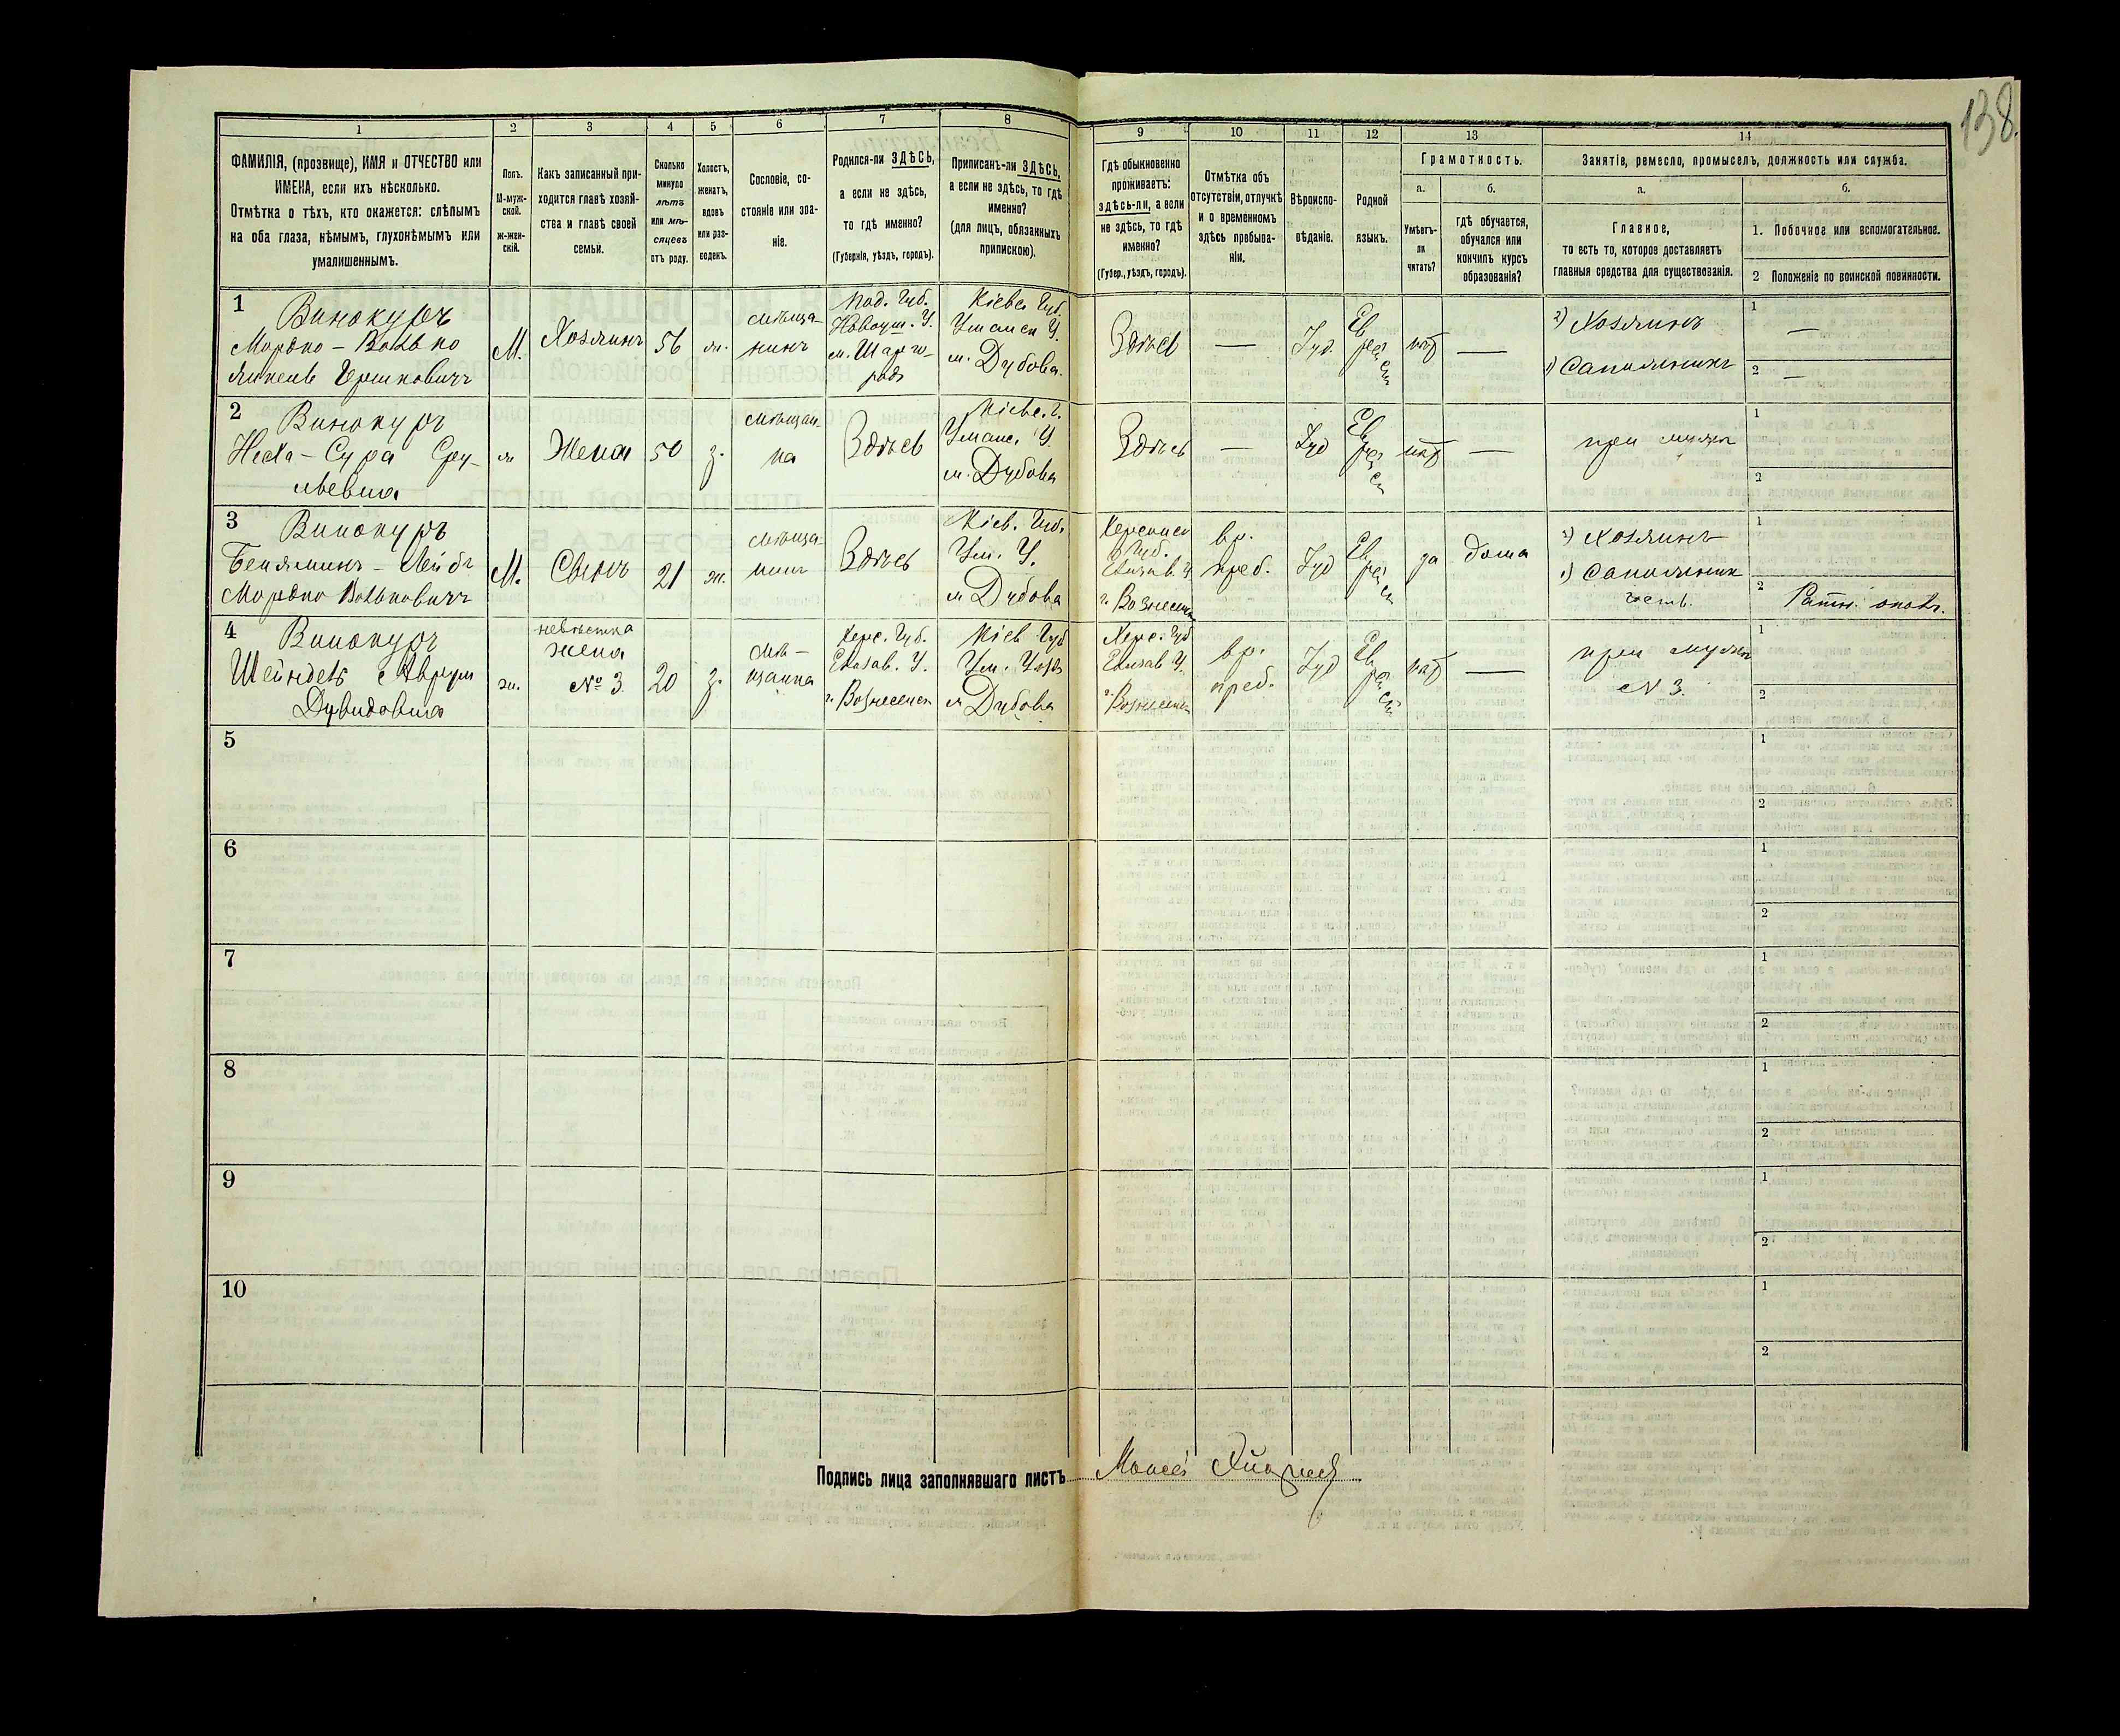 138.
1
2
3
4
5
6
7
8
9
10
11
12
13
14
ФАМИЛІЯ, (прозвище), ИМЯ и ОТЧЕСТВО или
ИМЕНА, если ихъ нѣсколько.
Отмѣтка о тѣхъ, кто окажется: слѣпымъ
на оба глаза, нѣмымъ, глухонѣмымъ или
умалишеннымъ.
Полъ.
М-муж-
ской.
ж-жен-
скій.
Какъ записанный при-
ходится главѣ хозяй-
ства и главѣ своей
семьи.
Сколько
минуло
лѣтъ
или мѣ-
сяцевъ
отъ роду.
Холостъ,
женатъ,
вдовъ
или раз-
веденъ.
Сословіе, со-
стояніе или зва-
ніе.
Родился-ли ЗДѢСЬ,
а если не здѣсь,
то гдѣ именно?
(Губернія, уѣздъ, городъ).
Приписанъ-ли ЗДѢСЬ,
а если не здѣсь, то гдѣ
именно?
(для лицъ, обязанныхъ
припискою).
Гдѣ обыкновенно
проживаетъ:
здѣсь-ли, а если
не здѣсь, то гдѣ
именно?
(Губер., уѣздъ, городъ).
Отмѣтка объ
отсутствіи, отлучкѣ
и о временномъ
здѣсь пребыва-
ніи.
Вѣроиспо-
вѣданіе.
Родной
языкъ.
Грамотность.
а.
Умѣетъ-
ли
читать?
б.
гдѣ обучается,
обучался или
кончилъ курсъ
образованія?
Занятіе, ремесло, промыселъ, должность или служба.
а.
Главное,
то есть то, которое доставляетъ
главныя средства для существованія.
б.
1. Побочное или вспомогательное.
2 Положеніе по воинской повинности.
1
Винокуръ
Мордко - Волько
Янкель Гершковичъ
М.
Хозяинъ
56
ж.
мѣща-
нинъ
Под. Губ.
Новоуш. У.
м. Шарго-
родъ
Кіевс. Губ.
Уманск У.
м. Дубова.
Здѣсь
—
Іуд.
Ев
рей
ск
нѣтъ
—
2) Хозяинъ
1) Сапожникъ
1
—
2
—
2
Винокуръ
Неха - Сура Сру-
льевна
ж
Жена
50
з.
мѣщан-
ка
Здѣсь
Кіевс. Г.
Уманс. У.
м. Дубова
Здѣсь
—
Іуд
Ев
рей
ск
нѣтъ
при мужѣ
1
2
3
Винокуръ
Беняминъ - Лейбъ
Мордко Вольковичъ
М.
Сынъ
21
ж.
мѣща-
нинъ
Здѣсь
Кіев. Губ.
Ум. У.
м Дубова
Херсонск
Губ.
Елизав. У
г. Вознесенск
вр.
преб.
Іуд
Ев
рей
ск
да
дома
2) Хозяинъ
1) Сапожник
1
2
Ратн. ополч.
4
Винокуръ
Шейндель Аврум
Дувидовна
ж.
невѣстка
жена
№ 3.
20
з.
мѣ-
щанка
Херс. Губ.
Елизав. У.
г. Вознесенск
Кіев Губ
Ум. Уѣз
м Дубова
Херс. Губ
Елизав У.
г. Вознесенск
вр.
преб.
Іуд
Ев
рей
ск
нѣтъ
—
при мужѣ
№ 3.
1
2
5
1
2
6
1
2
7
1
2
8
1
2
9
1
2
10
1
2
Подпись лица заполнявшаго листъ